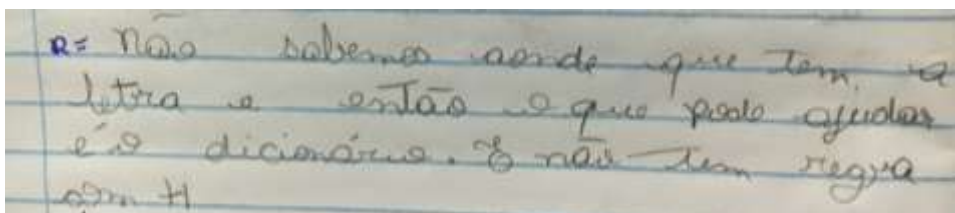 R= Não sabemos aonde que tem a
letra e então o que pode ajudar
é o dicionário. E não tem regra
com H